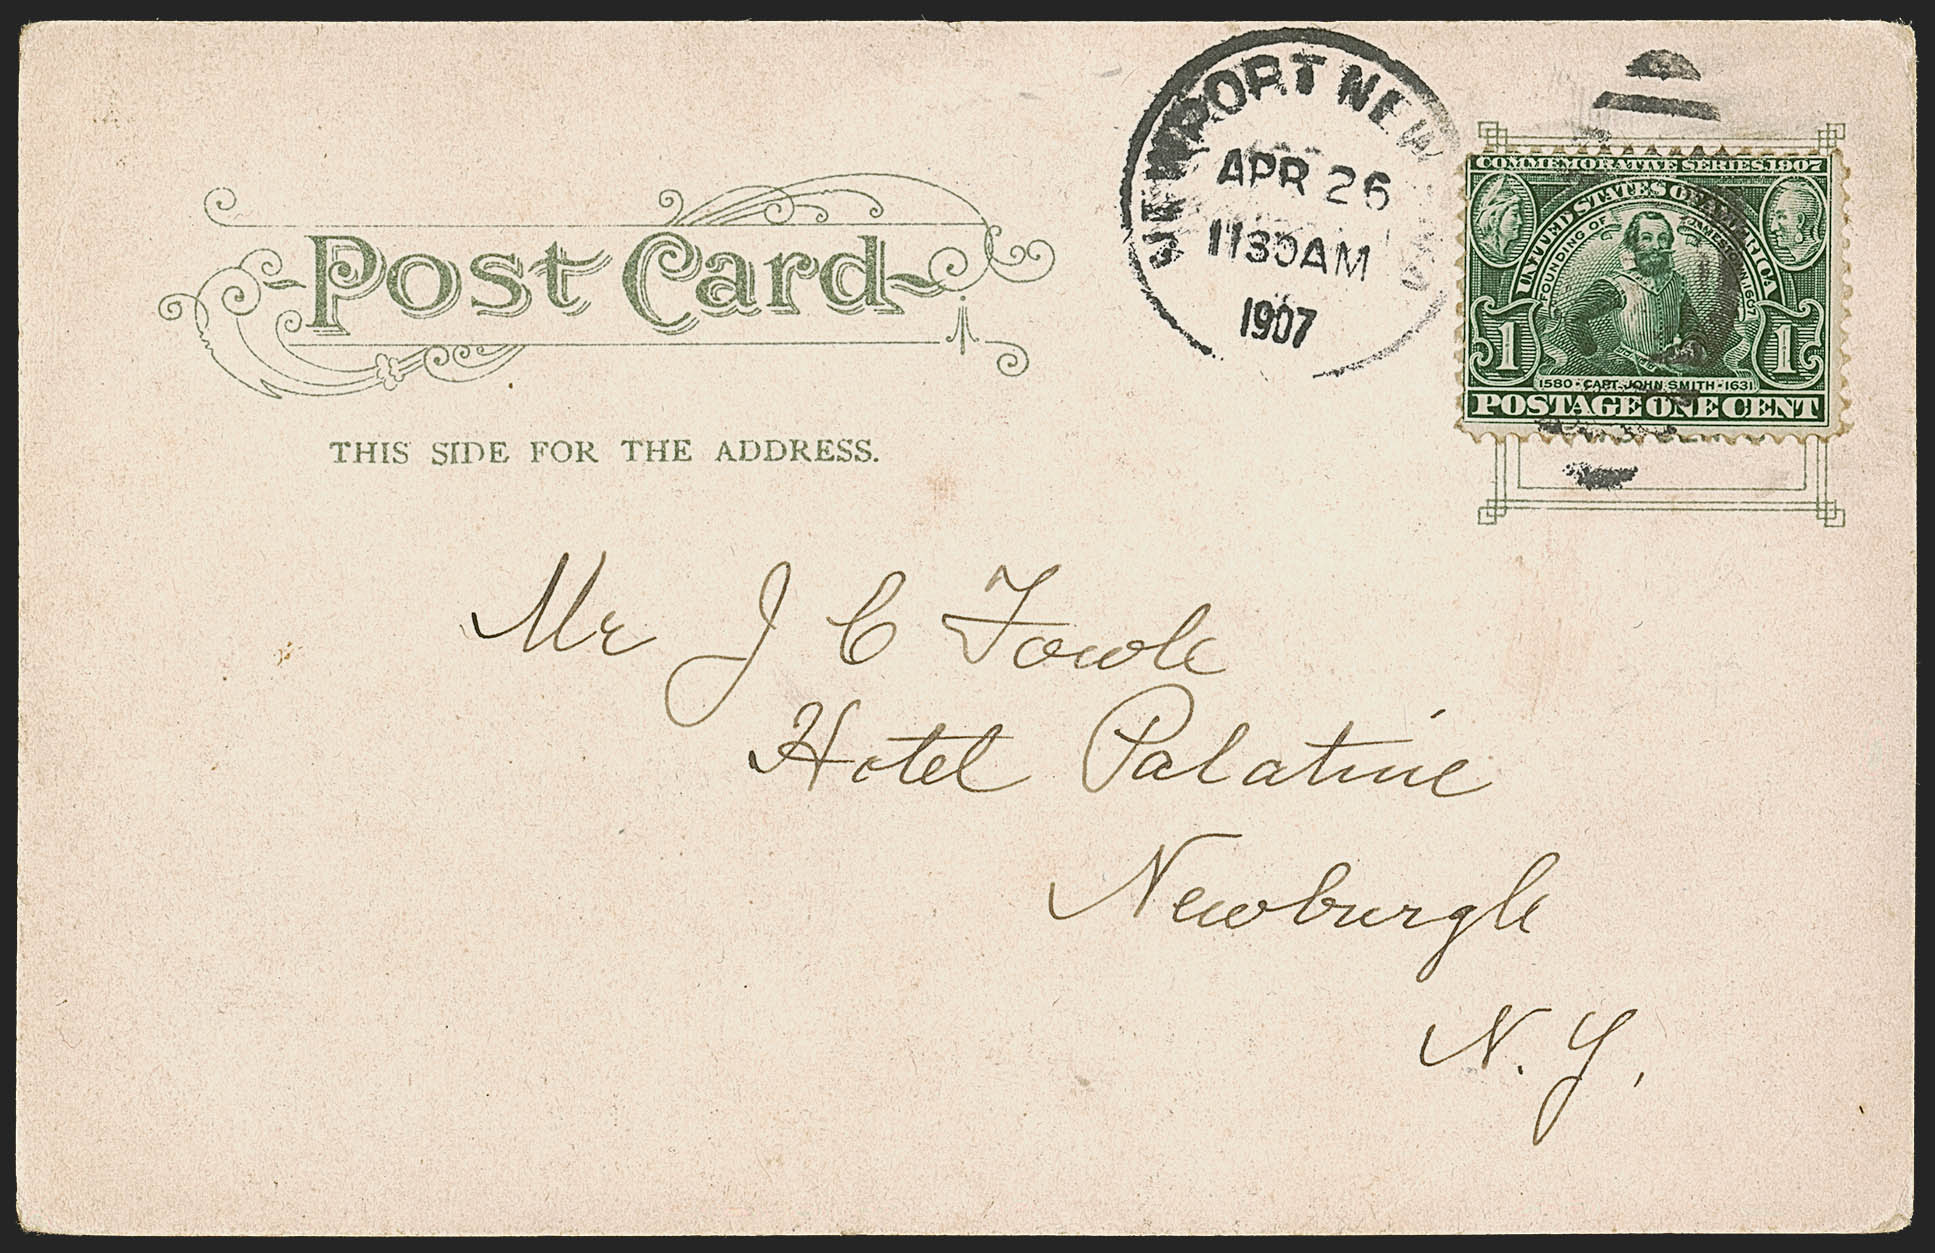 Post Card
THIS SIDE FOR THE ADDRESS.
NEWPORT NEWS
APR 26
1130AM
1907
COMMEMORATIVE SERIES 1907
UNITED STATES OF AMERICA
FOUNDING OF JAMESTOWN 1607
1 1
1580 · CAPT. JOHN SMITH · 1631
POSTAGE ONE CENT
Mr J C Fowle
Hotel Palatine
Newburgh
N. Y.